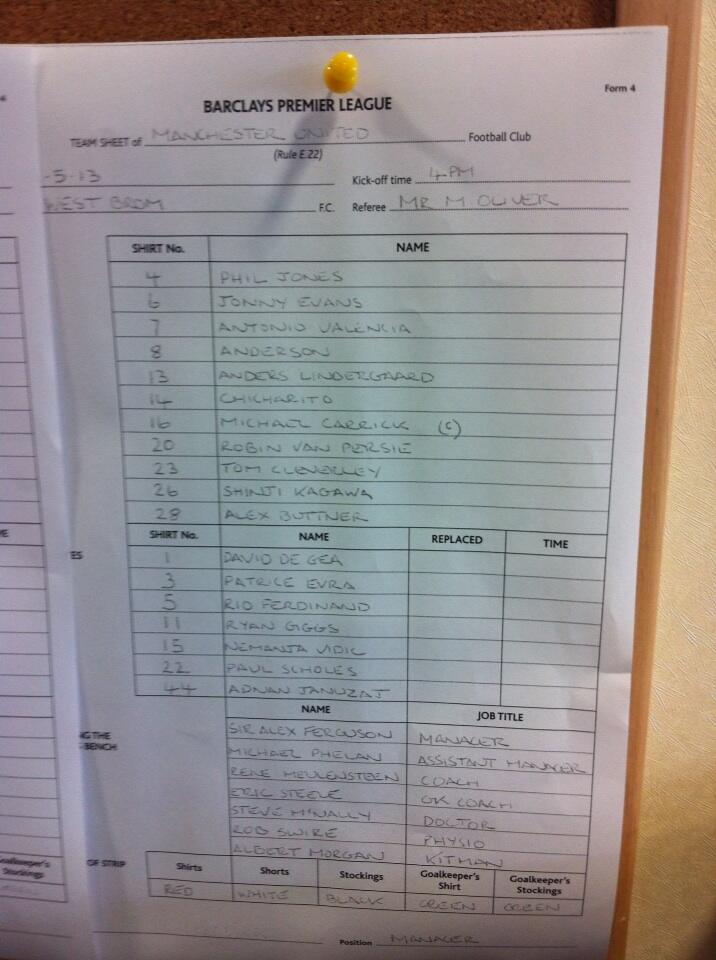 Form 4
BARCLAYS PREMIER LEAGUE
TEAM SHEET of MANCHESTER UNITED Football Club
(Rule E.22)
-5-13 Kick-off time 4PM
WEST BROM F.C. Referee MR M OLIVER
SHIRT No. NAME
4 PHIL JONES
6 JONNY EVANS
7 ANTONIO VALENCIA
8 ANDERSON
13 ANDERS LINDERGAARD
14 CHICHARITO
16 MICHAEL CARRICK (C)
20 ROBIN VAN PERSIE
23 TOM CLEVERLEY
26 SHINJI KAGAWA
28 ALEX BUTTNER
SHIRT No. NAME REPLACED TIME
1 DAVID DE GEA
3 PATRICE EVRA
5 RIO FERDINAND
11 RYAN GIGGS
15 NEMANJA VIDIC
22 PAUL SCHOLES
44 ADNAN JANUZAJ
NAME JOB TITLE
SIR ALEX FERGUSON MANAGER
MICHAEL PHELAN ASSISTANT MANAGER
RENE MEULENSTEEN COACH
ERIC STEELE GK COACH
STEVE McNALLY DOCTOR
ROB SWIRE PHYSIO
ALBERT MORGAN KITMAN
OF STRIP Shirts Shorts Stockings Goalkeeper's Shirt Goalkeeper's Stockings
RED WHITE BLACK GREEN GREEN
Position MANAGER
NG THE
BENCH
Goalkeeper's
Stockings